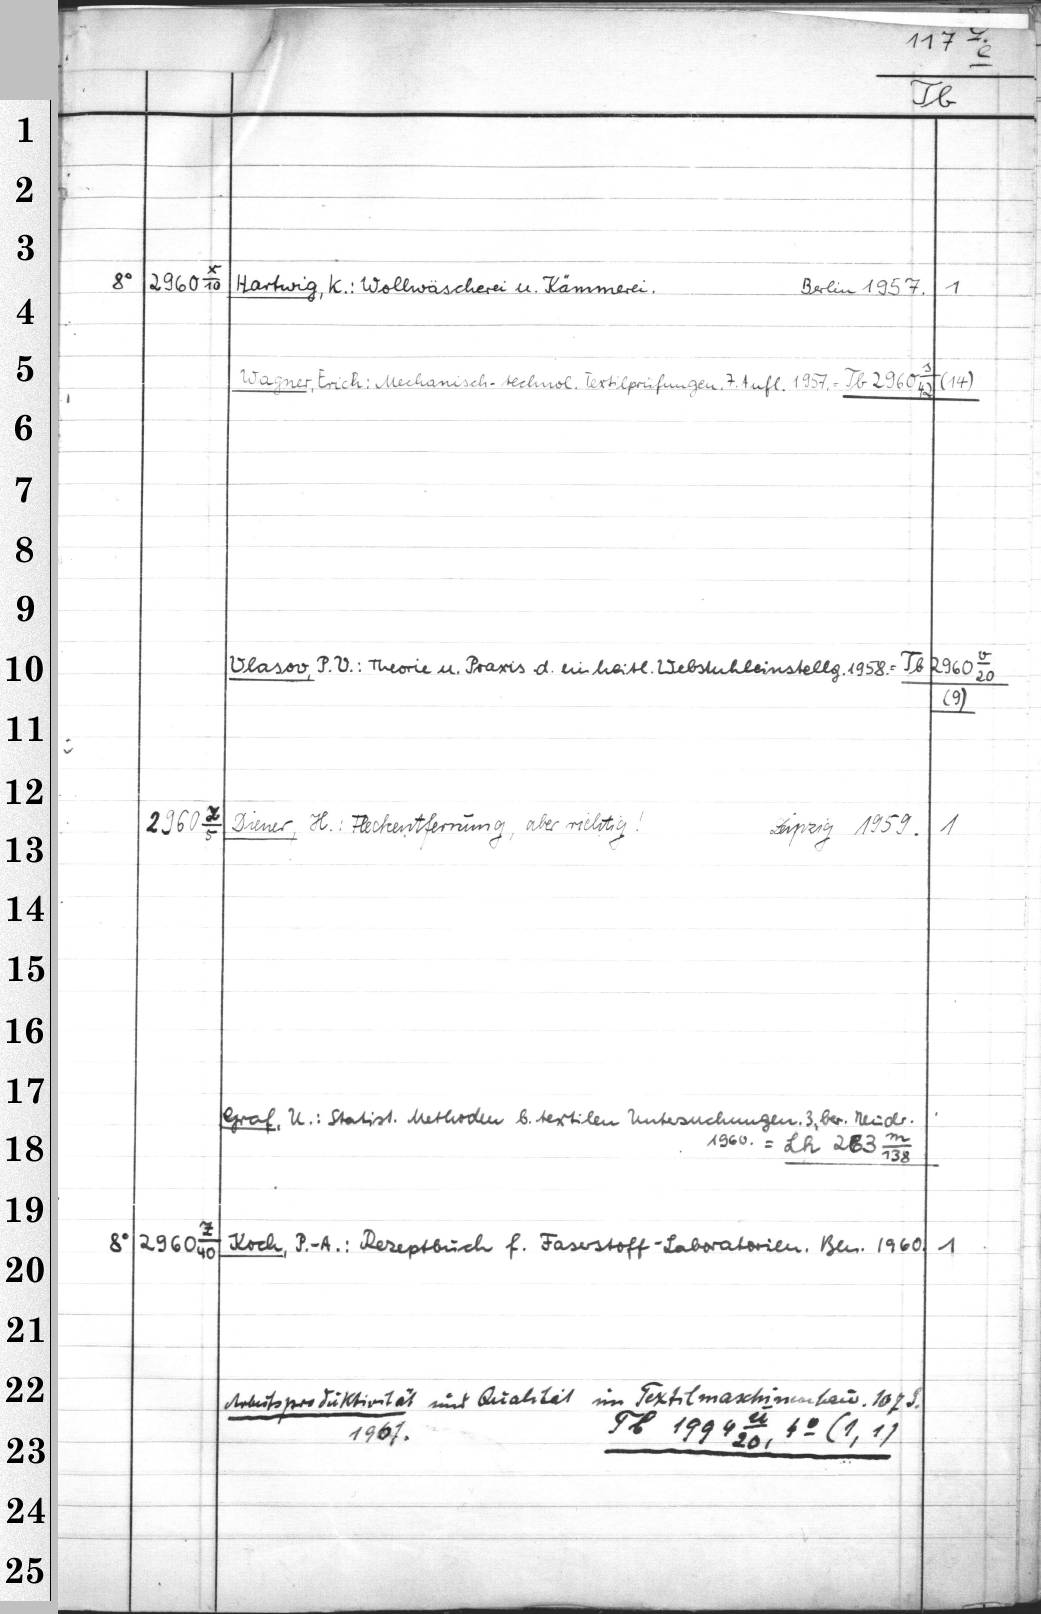 117
Tb
8° 2960 x/10 Hartwig, K.: Wollwäscherei u. Kämmerei. Berlin 1957. 1
Wagner, Erich: Mechanisch-technol. Textilprüfungen. 7. Aufl. 1957. = Tb 2960 s/42 (14)
Vlasov, P.V.: Theorie u. Praxis d. einheitl. Webstuhleinstellg. 1958. = Tb 2960 v/20
(9)
2960 z/5 Diener, H.: Fleckentfernung, aber richtig! Leipzig 1959. 1
Graf, U.: Statist. Methoden b. textilen Untersuchungen. 3, ber. Neudr.
1960. = Lh 263 m/138
8° 2960 z/40 Koch, P.-A.: Rezeptbuch f. Faserstoff-Laboratorien. Bln. 1960. 1
Arbeitsproduktivität und Qualität im Textilmaschinenbau. 107 S.
1961. Tb 1994 u/20, 4° (1, 1)
1
2
3
4
5
6
7
8
9
10
11
12
13
14
15
16
17
18
19
20
21
22
23
24
25